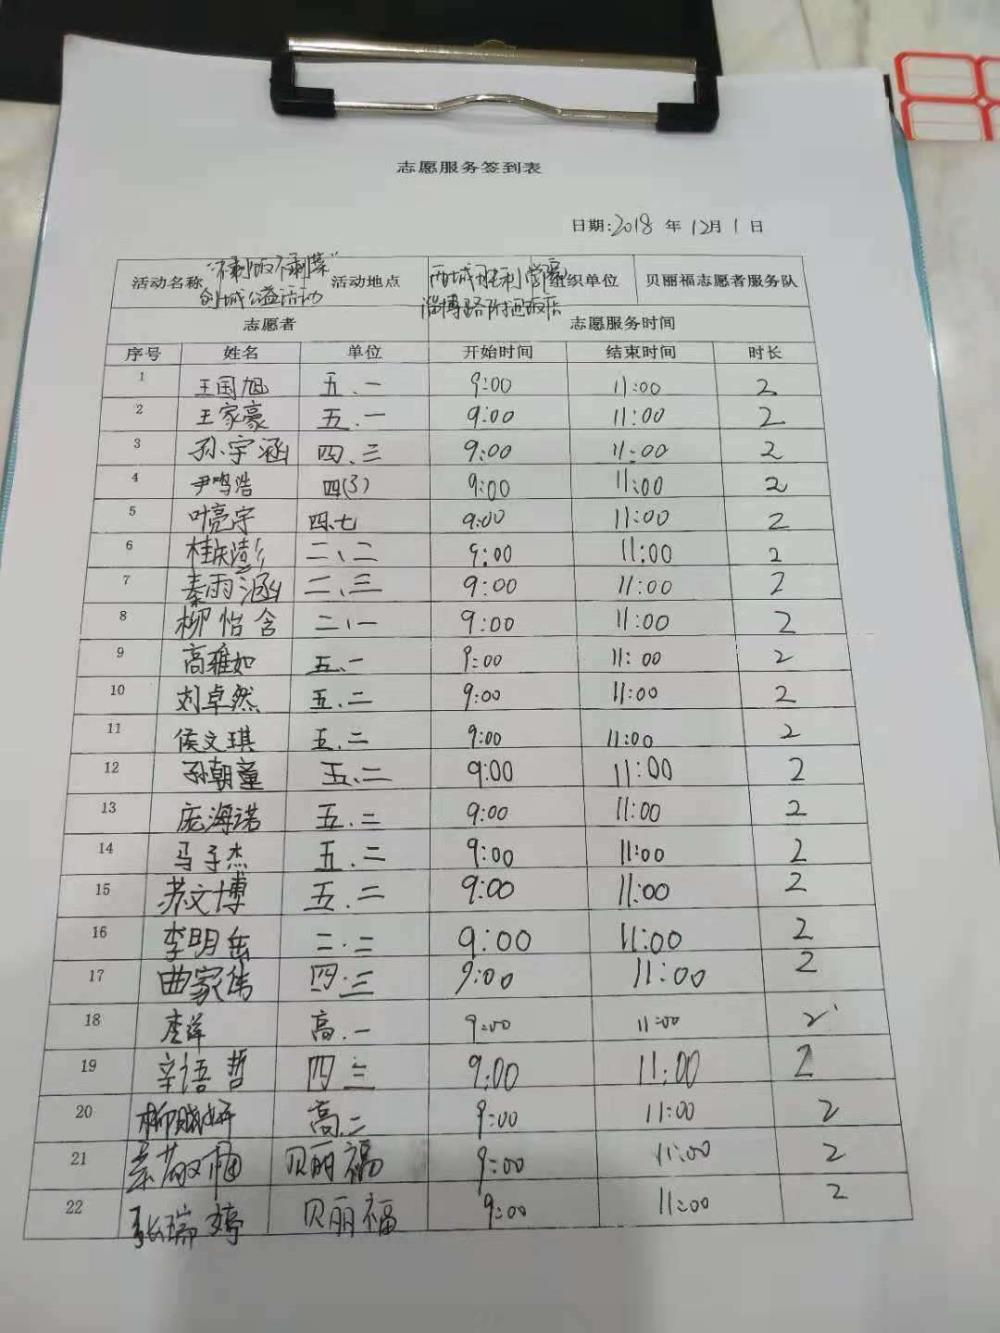 志愿服务签到表
日期:2018 年 12月 1 日
活动名称 "不剩饭不剩菜" 创城公益活动 活动地点 西城 淄博路附近饭店 组织单位 贝丽福志愿者服务队
志愿者 志愿服务时间
序号 姓名 单位 开始时间 结束时间 时长
1 王国旭 五.一 9:00 11:00 2
2 王家豪 五.一 9:00 11:00 2
3 孙宇涵 四.三 9:00 11:00 2
4 尹鸣浩 四(3) 9:00 11:00 2
5 叶亮宇 四.七 9:00 11:00 2
6 二、二 9:00 11:00 2
7 秦雨涵 二、三 9:00 11:00 2
8 柳怡含 二、一 9:00 11:00 2
9 高雅如 五.一 9:00 11:00 2
10 刘卓然 五.二 9:00 11:00 2
11 侯文琪 五.二 9:00 11:00 2
12 孙朝童 五.二 9:00 11:00 2
13 庞海诺 五.二 9:00 11:00 2
14 马子杰 五.二 9:00 11:00 2
15 苏文博 五.二 9:00 11:00 2
16 李明岳 二.二 9:00 11:00 2
17 曲家伟 四.三 9:00 11:00 2
18 高.一 9:00 11:00 2
19 辛语哲 四三 9:00 11:00 2
20 高.二 9:00 11:00 2
21 贝丽福 9:00 11:00 2
22 张瑞婷 贝丽福 9:00 11:00 2